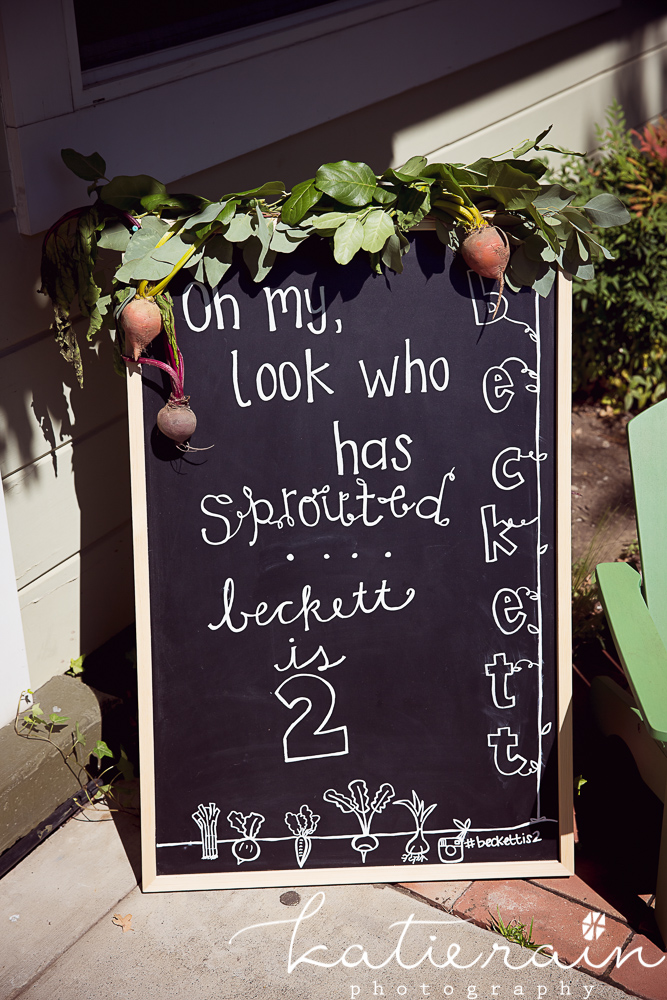 Oh my,
look who
has
sprouted
. . . .
beckett
is
2
Beckett
#beckettis2
katierain
photography